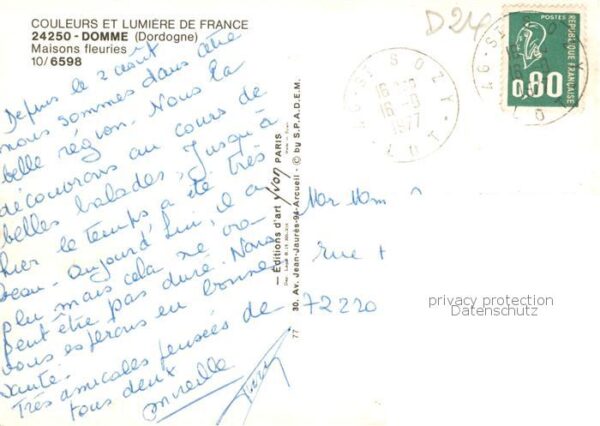 COULEURS ET LUMIÈRE DE FRANCE
24250 - DOMME (Dordogne)
Maisons fleuries
10/6598
Depuis le 2 août
nous sommes dans cette
belle région. Nous la
découvrons au cours de
belles balades. Jusqu'à
hier le temps a été très
beau - aujourd'hui, il a
plu mais cela ne va
peut être pas duré. Nous
vous espérons en bonne
santé.
Très amicales pensées de
tous deux
Mireille
— Editions d'art yvon PARIS
30, Av. Jean-Jaurès-94-Arcueil - © by S.P.A.D.E.M.
77
D 24
46-ST SOZY
16 -8
1977
LOT
POSTES
0,80
REPUBLIQUE FRANÇAISE
rue
72220
privacy protection
Datenschutz